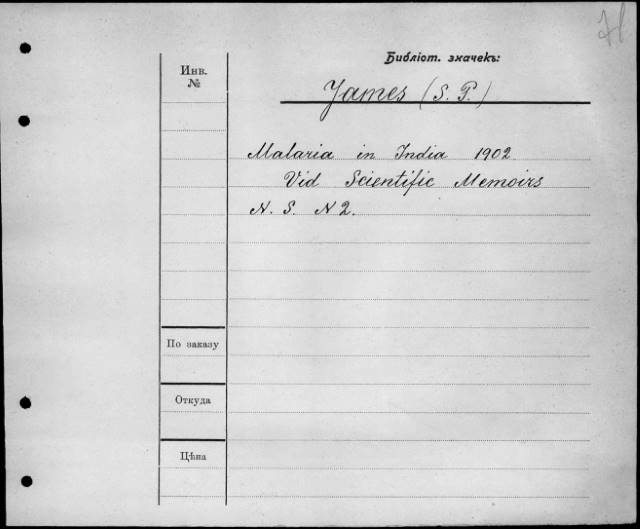 Библіот. значекъ:
Инв.
№
James (S. P.)
Malaria in India 1902
Vid Scientific Memoirs
N. S. N 2.
По заказу
Откуда
Цѣна